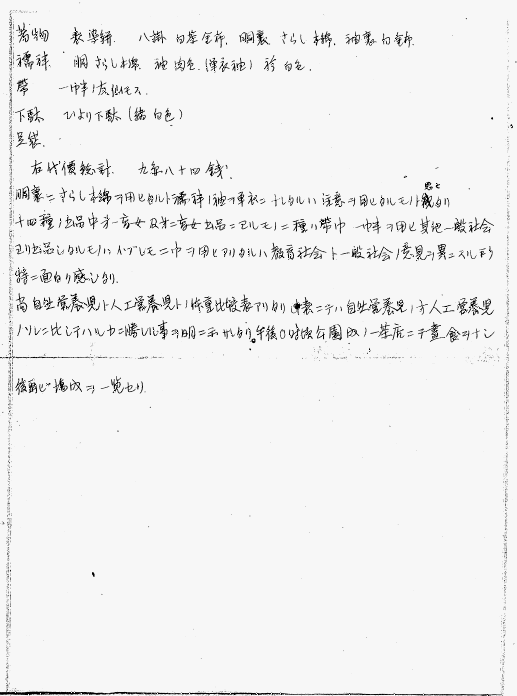 着物 表染絣. 八掛 白茶金巾. 胴裏 さらし木綿. 袖裏白金巾.
襦袢. 胴 さらし木綿. 袖 肉色 (浄衣袖) 衿 白色.
帯 一巾半ノ友仙モス.
下駄 ひより下駄 (緒 白色)
足袋.
右代價総計. 九円八十四銭.
胴裏ニさらし木綿ヲ用ヒタルト襦袢ノ袖ヲ浄衣ニナしタルハ注意ヲ用ヒタルモノト思ヒタリ
十四種ノ出品中オ一高女及オ二高女出品ニヨルモノ二種ハ帯巾一巾半ヲ用ヒ其他一般社会
ヨリ出品シタルモノハイヅレモ二巾ヲ用ヒアリタルハ教育社会ト一般社会ノ意見ヲ異ニスル所
特ニ面白ク感シタリ.
尚自然営養児ト人工営養児トノ体重比較表アリタリ 表ニテハ自然営養児ノ方人工営養児
ノソレニ比シテハルカニ勝レル事ヲ明ニ示サレタリ。午後〇時頃公園内ノ一茶店ニテ晝食ヲナシ
後再ビ場内ヲ一覧セリ.